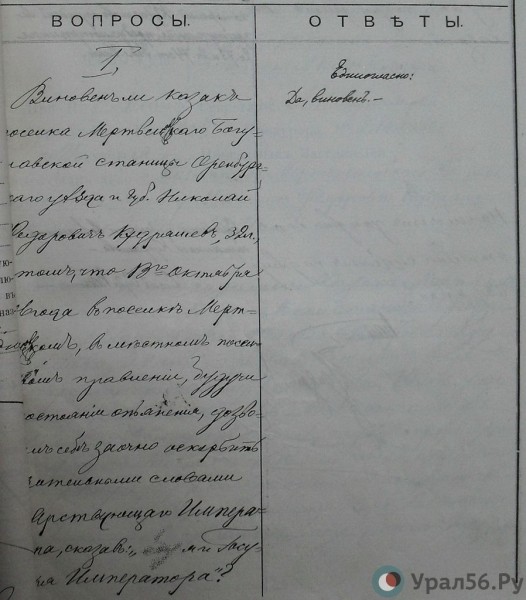 ВОПРОСЫ. ОТВѢТЫ.
I
Виновенъ ли казакъ
поселка Мертвецовскаго Богу-
лавской станицы Оренбург-
скаго уѣзда и губ. Николай
Кудряшев, 32 л.,
томъ, что октября
года в поселкѣ Мерт-
комъ, в мѣстномъ посел-
комъ правленіи, будучи
состояніи опьяненія, дозво-
лъ себѣ заочно оскорбить
словами
арствующаго Импера-
ра, сказав: „ Госу-
я Императора"?
Единогласно:
Да, виновенъ.–
Урал56.Ру